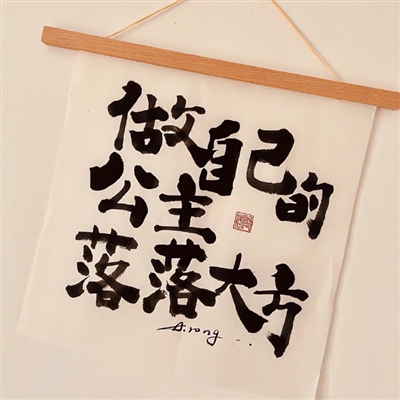 做自己的
公主
落落大方
A.rong